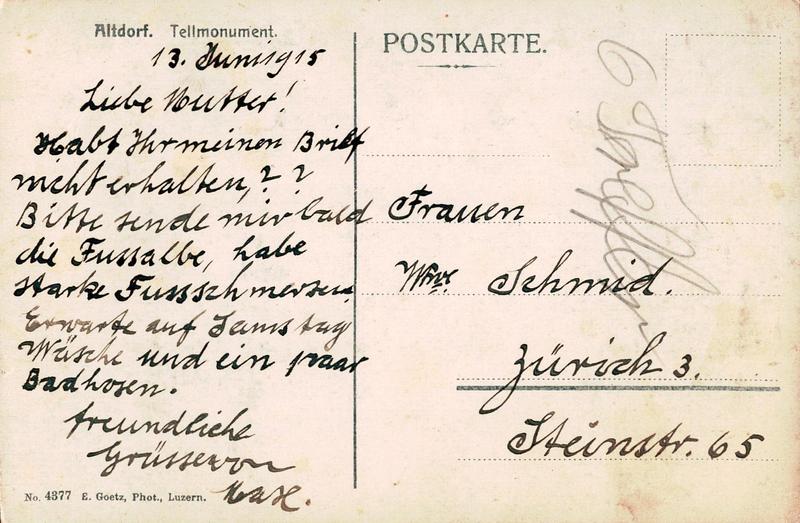 Altdorf. Tellmonument.
13. Juni 1915
Liebe Mutter!
Habt Ihr meinen Brief
nicht erhalten, ? ?
Bitte sende mir bald
die Fussalbe, habe
starke Fussschmersen,
Erwarte auf Samstag
Wäsche und ein paar
Badhosen.
freundliche
Grüsse von
Max.
No. 4377 E. Goetz, Phot., Luzern.
POSTKARTE.
Frauen
Wwe Schmid.
Zürich 3.
Steinstr. 65
6